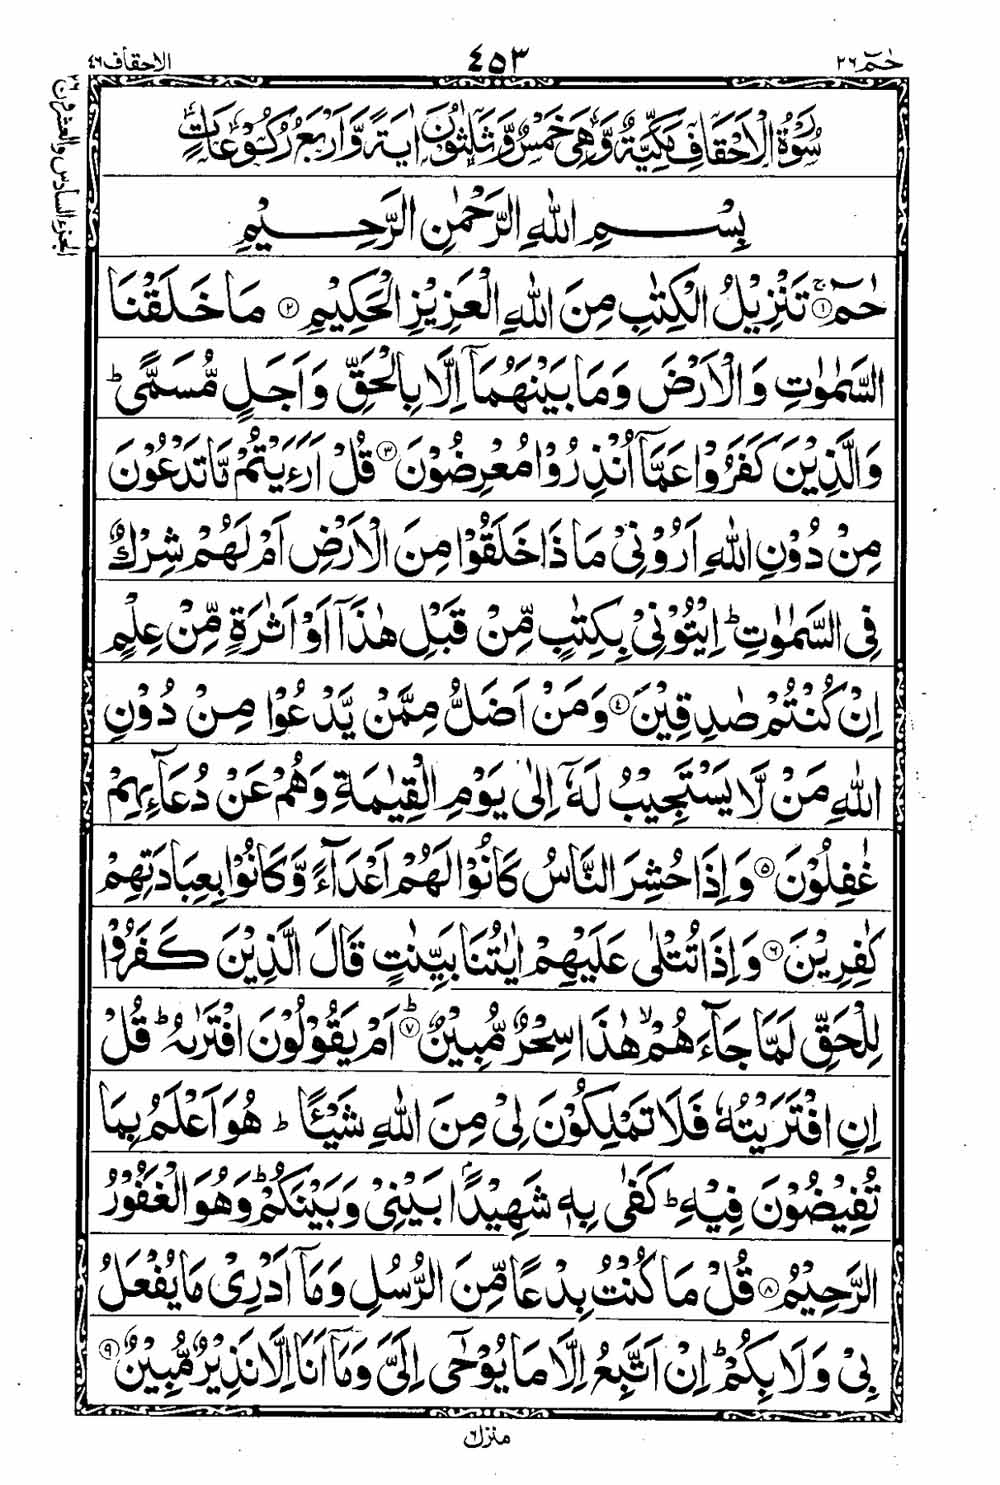 حٰمٓ ٢٦
٤٥٣
الاحقاف ٤٦
الجزء السادس والعشرون ٢٦
سُوْرَةُ الْاَحْقَافِ مَكِّيَّةٌ وَّهِىَ خَمْسٌ وَّثَلٰثُوْنَ اٰيَةً وَّاَرْبَعُ رُكُوْعَاتٍ
بِسْمِ اللهِ الرَّحْمٰنِ الرَّحِيْمِ
حٰمٓ ۚ‏﴿۱﴾ تَنْزِيْلُ الْكِتٰبِ مِنَ اللهِ الْعَزِيْزِ الْحَكِيْمِ ﴿۲﴾ مَا خَلَقْنَا
السَّمٰوٰتِ وَالْاَرْضَ وَمَا بَيْنَهُمَاۤ اِلَّا بِالْحَقِّ وَاَجَلٍ مُّسَمًّى ؕ
وَالَّذِيْنَ كَفَرُوْا عَمَّاۤ اُنْذِرُوْا مُعْرِضُوْنَ ﴿۳﴾ قُلْ اَرَءَيْتُمْ مَّا تَدْعُوْنَ
مِنْ دُوْنِ اللهِ اَرُوْنِىْ مَاذَا خَلَقُوْا مِنَ الْاَرْضِ اَمْ لَهُمْ شِرْكٌ
فِى السَّمٰوٰتِ ؕ اِيْتُوْنِىْ بِكِتٰبٍ مِّنْ قَبْلِ هٰذَاۤ اَوْ اَثٰرَةٍ مِّنْ عِلْمٍ
اِنْ كُنْتُمْ صٰدِقِيْنَ ﴿۴﴾ وَمَنْ اَضَلُّ مِمَّنْ يَّدْعُوْا مِنْ دُوْنِ
اللهِ مَنْ لَّا يَسْتَجِيْبُ لَهٗۤ اِلٰى يَوْمِ الْقِيٰمَةِ وَهُمْ عَنْ دُعَآئِهِمْ
غٰفِلُوْنَ ﴿۵﴾ وَاِذَا حُشِرَ النَّاسُ كَانُوْا لَهُمْ اَعْدَآءً وَّكَانُوْا بِعِبَادَتِهِمْ
كٰفِرِيْنَ ﴿۶﴾ وَاِذَا تُتْلٰى عَلَيْهِمْ اٰيٰتُنَا بَيِّنٰتٍ قَالَ الَّذِيْنَ كَفَرُوْا
لِلْحَقِّ لَمَّا جَآءَهُمْ ۙ هٰذَا سِحْرٌ مُّبِيْنٌ ؕ﴿۷﴾ اَمْ يَقُوْلُوْنَ افْتَرٰىهُ ؕ قُلْ
اِنِ افْتَرَيْتُهٗ فَلَا تَمْلِكُوْنَ لِىْ مِنَ اللهِ شَيْـًٔا ؕ هُوَ اَعْلَمُ بِمَا
تُفِيْضُوْنَ فِيْهِ ؕ كَفٰى بِهٖ شَهِيْدًاۢ بَيْنِىْ وَبَيْنَكُمْ ؕ وَهُوَ الْغَفُوْرُ
الرَّحِيْمُ ﴿۸﴾ قُلْ مَا كُنْتُ بِدْعًا مِّنَ الرُّسُلِ وَمَاۤ اَدْرِىْ مَا يُفْعَلُ
بِىْ وَلَا بِكُمْ ؕ اِنْ اَتَّبِعُ اِلَّا مَا يُوْحٰۤى اِلَىَّ وَمَاۤ اَنَا اِلَّا نَذِيْرٌ مُّبِيْنٌ ﴿۹﴾
منزل ٦